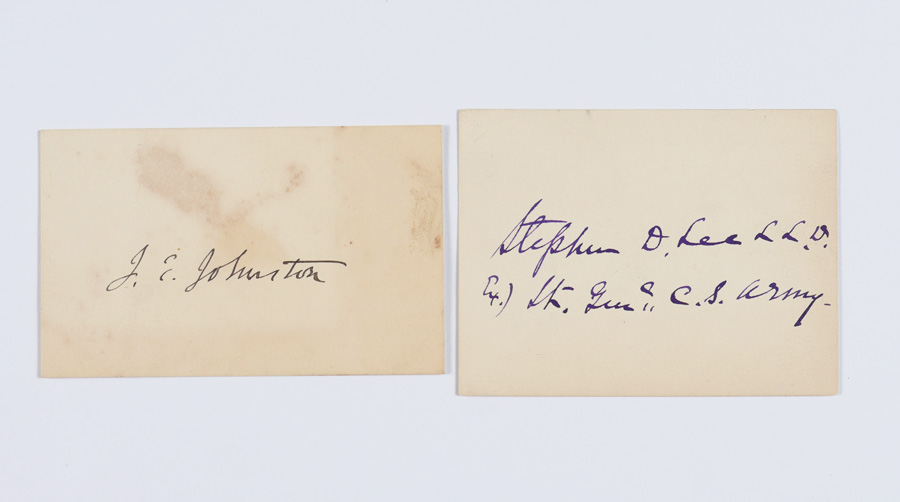 J. E. Johnston
Stephen D. Lee L L.D.
Ex.) Lt. Genl., C.S. Army-